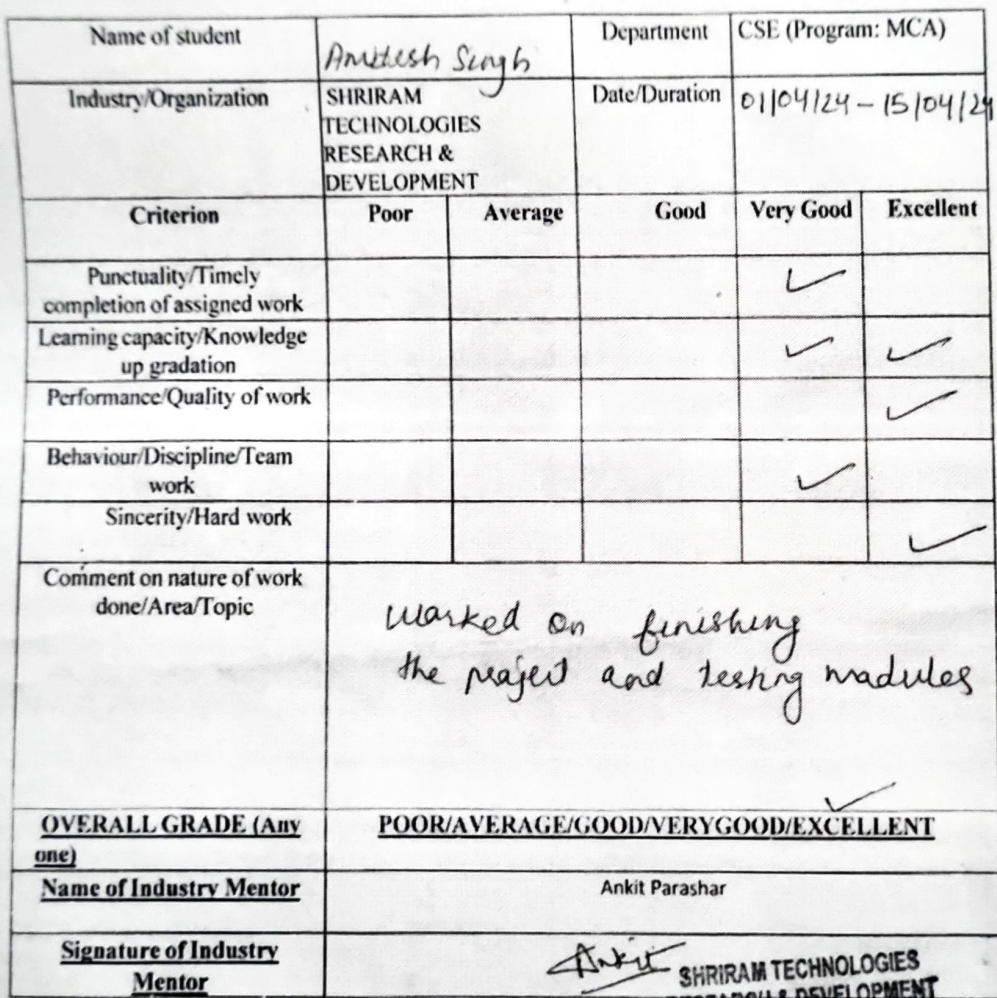 Name of student Amitesh Singh Department CSE (Program: MCA)
Industry/Organization SHRIRAM Date/Duration 01/04/24 – 15/04/24
TECHNOLOGIES
RESEARCH &
DEVELOPMENT
Criterion Poor Average Good Very Good Excellent
Punctuality/Timely
completion of assigned work ✓
Learning capacity/Knowledge ✓ ✓
up gradation
Performance/Quality of work ✓
Behaviour/Discipline/Team
work ✓
Sincerity/Hard work ✓
Comment on nature of work
done/Area/Topic
worked on finishing
the project and testing modules
✓
OVERALL GRADE (Any POOR/AVERAGE/GOOD/VERYGOOD/EXCELLENT
one)
Name of Industry Mentor Ankit Parashar
Signature of Industry Ankit SHRIRAM TECHNOLOGIES
Mentor RESEARCH & DEVELOPMENT